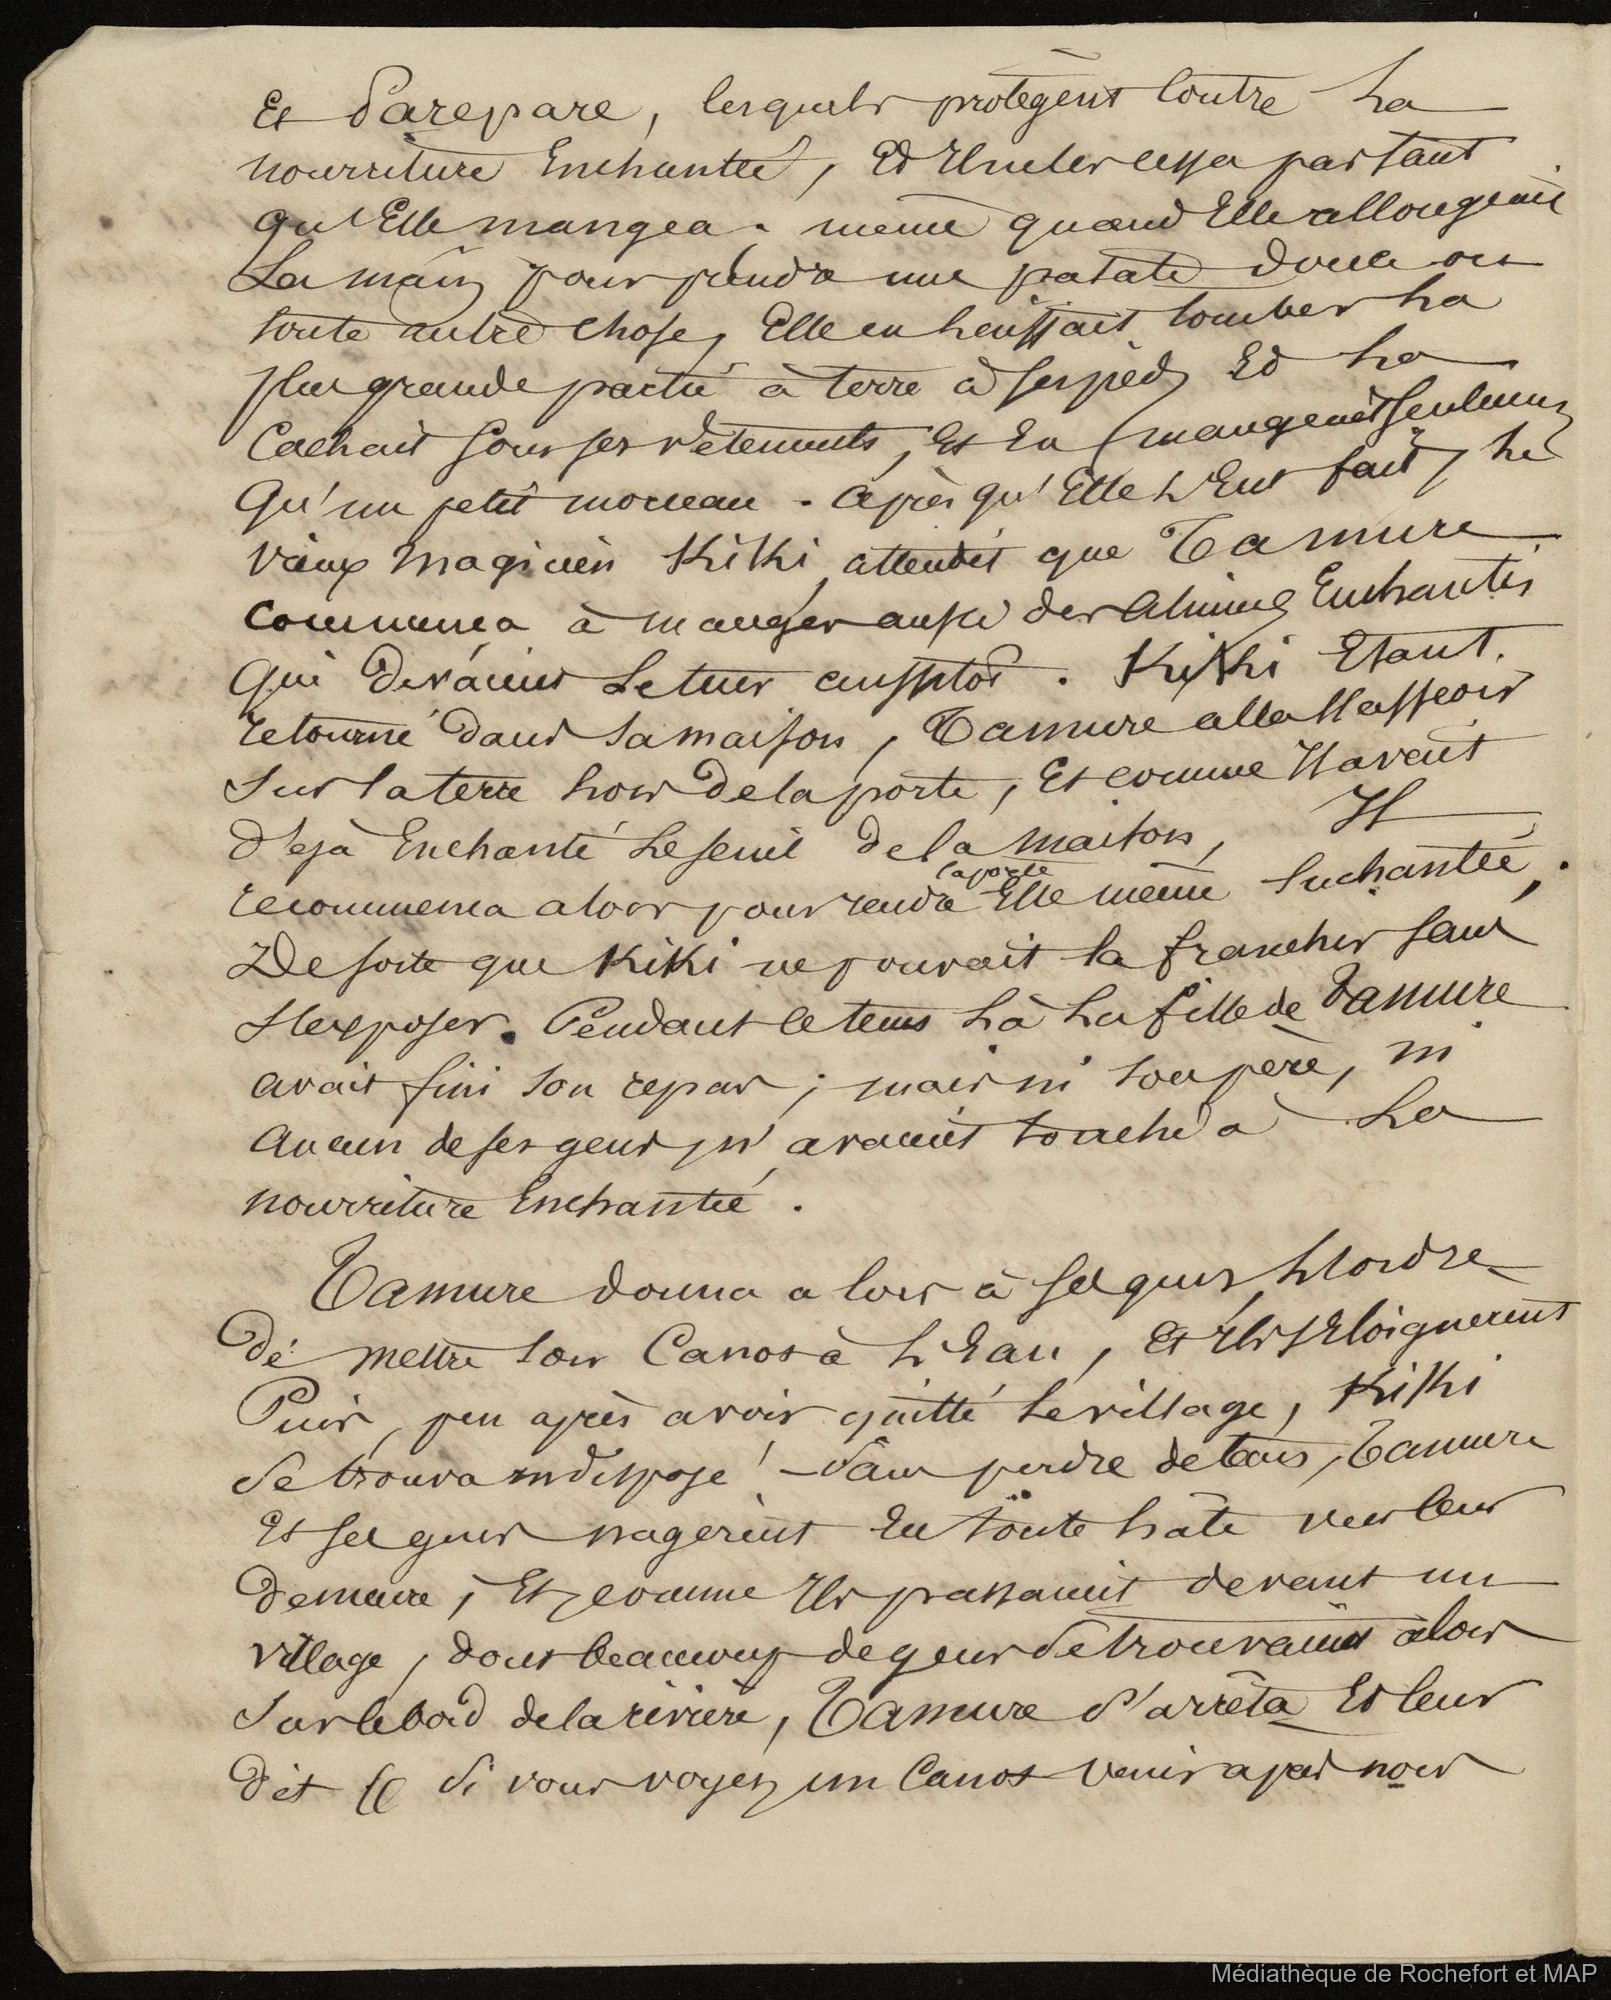 Et Parepare, lesquels protègent contre La
nourriture Enchantée, Et Elle ne les cessa pas tant
qu'Elle mangea. même quand Elle allongeait
La main pour prendre une patate douce ou
toute autre chose, Elle en laissait tomber La
plus grande partie à terre à ses pieds Et La
Cachait sous ses vêtements, Et En mangeait seulement
Qu'un petit morceau. Après qu'Elle L'Eut fait, Le
vieux magicien KiKi, attendit que Tamure
commença à manger aussi des Aliments Enchantés
Qui devaient Le tuer aussitôt. KiKi Etant
retourné dans sa maison, Tamure alla S'asseoir
Sur la terre hors De la porte, Et comme Il avait
déjà Enchanté Le seuil de la maison, Il
la porte
recommença alors pour rendre Elle même Enchantée,
De sorte que KiKi ne pouvait la francher sans
S'exposer. Pendant le tems Là La fille de Tamure
avait fini son repas ; mais ni son père, ni
Aucun de ses gens, n'avaient touché à La
nourriture Enchantée.
Tamure donna alors à Ses gens L'ordre
De mettre son Canot à L'Eau, Et Ils S'Eloignerent
Puis, peu après avoir quitté Le village, KiKi
Se trouva indisposé ! - Sans perdre de tems, Tamure
Et Ses gens nagerent En toute hâte vers leur
Demeure, Et, comme Ils passaient devant un
village, dont beaucoup de gens Se trouvaient alors
Sur le bord de la rivière, Tamure S'arrêta Et leur
Dit « Si vous voyez un Canot venir après nous